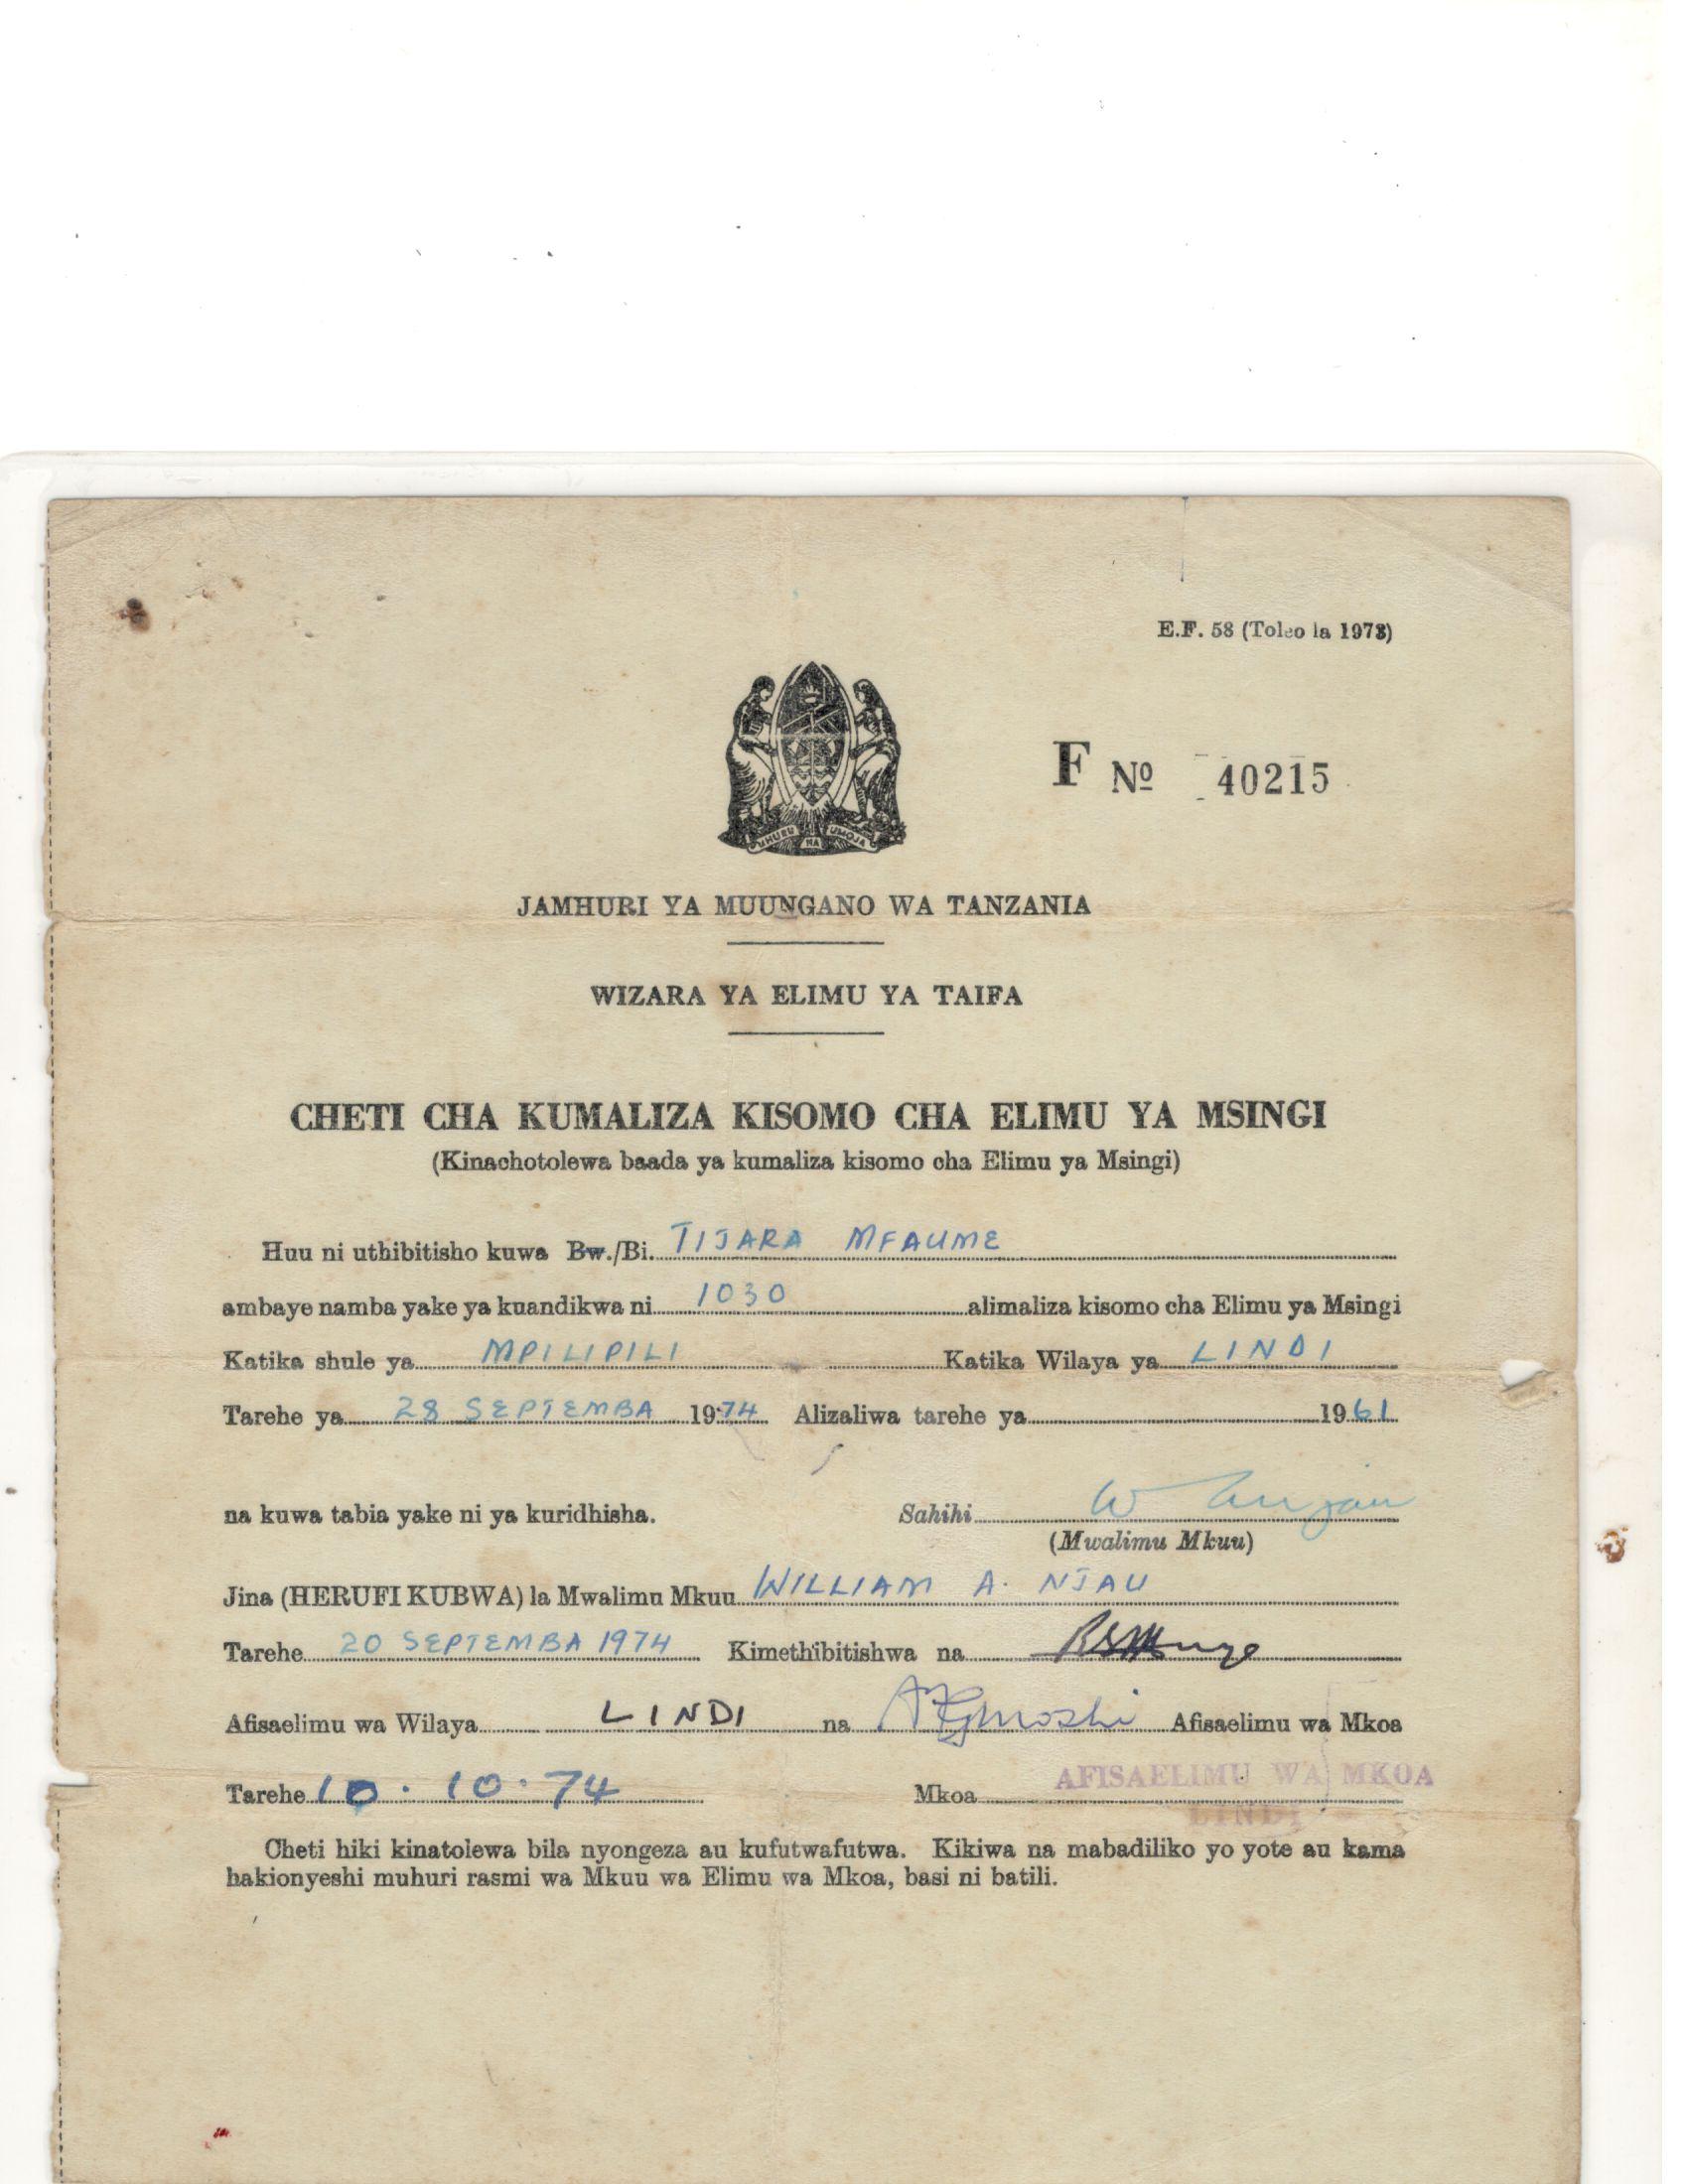 E.F. 58 (Toleo la 1973)
F Nº 40215
UHURU NA UMOJA
JAMHURI YA MUUNGANO WA TANZANIA
WIZARA YA ELIMU YA TAIFA
CHETI CHA KUMALIZA KISOMO CHA ELIMU YA MSINGI
(Kinachotolewa baada ya kumaliza kisomo cha Elimu ya Msingi)
Huu ni uthibitisho kuwa Bw./Bi. TIJARA MFAUME
ambaye namba yake ya kuandikwa ni 1030 alimaliza kisomo cha Elimu ya Msingi
Katika shule ya MPILIPILI Katika Wilaya ya LINDI
Tarehe ya 28 SEPTEMBA 1974 Alizaliwa tarehe ya 1961
na kuwa tabia yake ni ya kuridhisha. Sahihi
(Mwalimu Mkuu)
Jina (HERUFI KUBWA) la Mwalimu Mkuu WILLIAM A. NJAU
Tarehe 20 SEPTEMBA 1974 Kimethibitishwa na
Afisaelimu wa Wilaya LINDI na Afisaelimu wa Mkoa
Tarehe 10.10.74 Mkoa AFISAELIMU WA MKOA
LINDI
Cheti hiki kinatolewa bila nyongeza au kufutwafutwa. Kikiwa na mabadiliko yo yote au kama
hakionyeshi muhuri rasmi wa Mkuu wa Elimu wa Mkoa, basi ni batili.